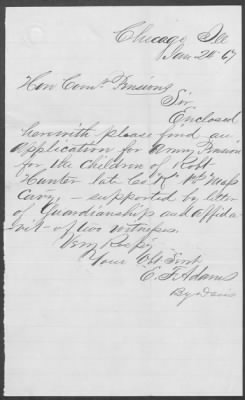 Chicago Ill
Jan 20 67
Hon Comr Pensions
Sir
Enclosed
herewith please find an
Application for Army Pension
for the children of Robt
Hunter late Co. Mass
Cavy, - supported by letter
of Guardianship and affida
vit - of two witnesses.
Very Respy
Your Obt Servt
E. F. Adams
By Davis